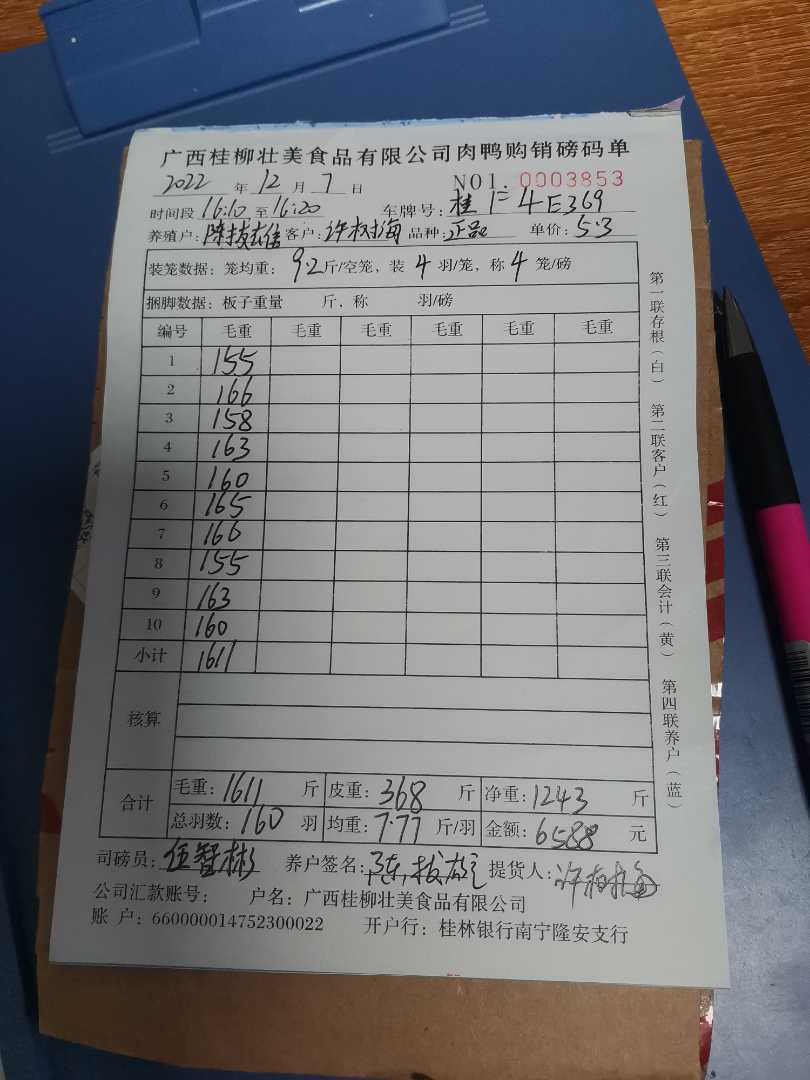 广西桂柳壮美食品有限公司肉鸭购销磅码单
2022 年 12 月 7 日 NO1. 0003853
时间段 16:10 至 16:20 车牌号: 桂F4E369
养殖户: 陈拔雄 客户: 许树海 品种: 正品 单价: 5.3
装笼数据: 笼均重: 9.2 斤/空笼, 装 4 羽/笼, 称 4 笼/磅
捆脚数据: 板子重量 斤, 称 羽/磅
编号 毛重 毛重 毛重 毛重 毛重 毛重
1 155
2 166
3 158
4 163
5 160
6 165
7 166
8 155
9 163
10 160
小计 1611
核算
合计 毛重: 1611 斤 皮重: 368 斤 净重: 1243 斤
总羽数: 160 羽 均重: 7.77 斤/羽 金额: 6588 元
司磅员: 伍智彬 养户签名: 陈拔雄 提货人:
公司汇款账号: 户名: 广西桂柳壮美食品有限公司
账 户: 660000014752300022 开户行: 桂林银行南宁隆安支行
第一联存根(白) 第二联客户(红) 第三联会计(黄) 第四联养户(蓝)